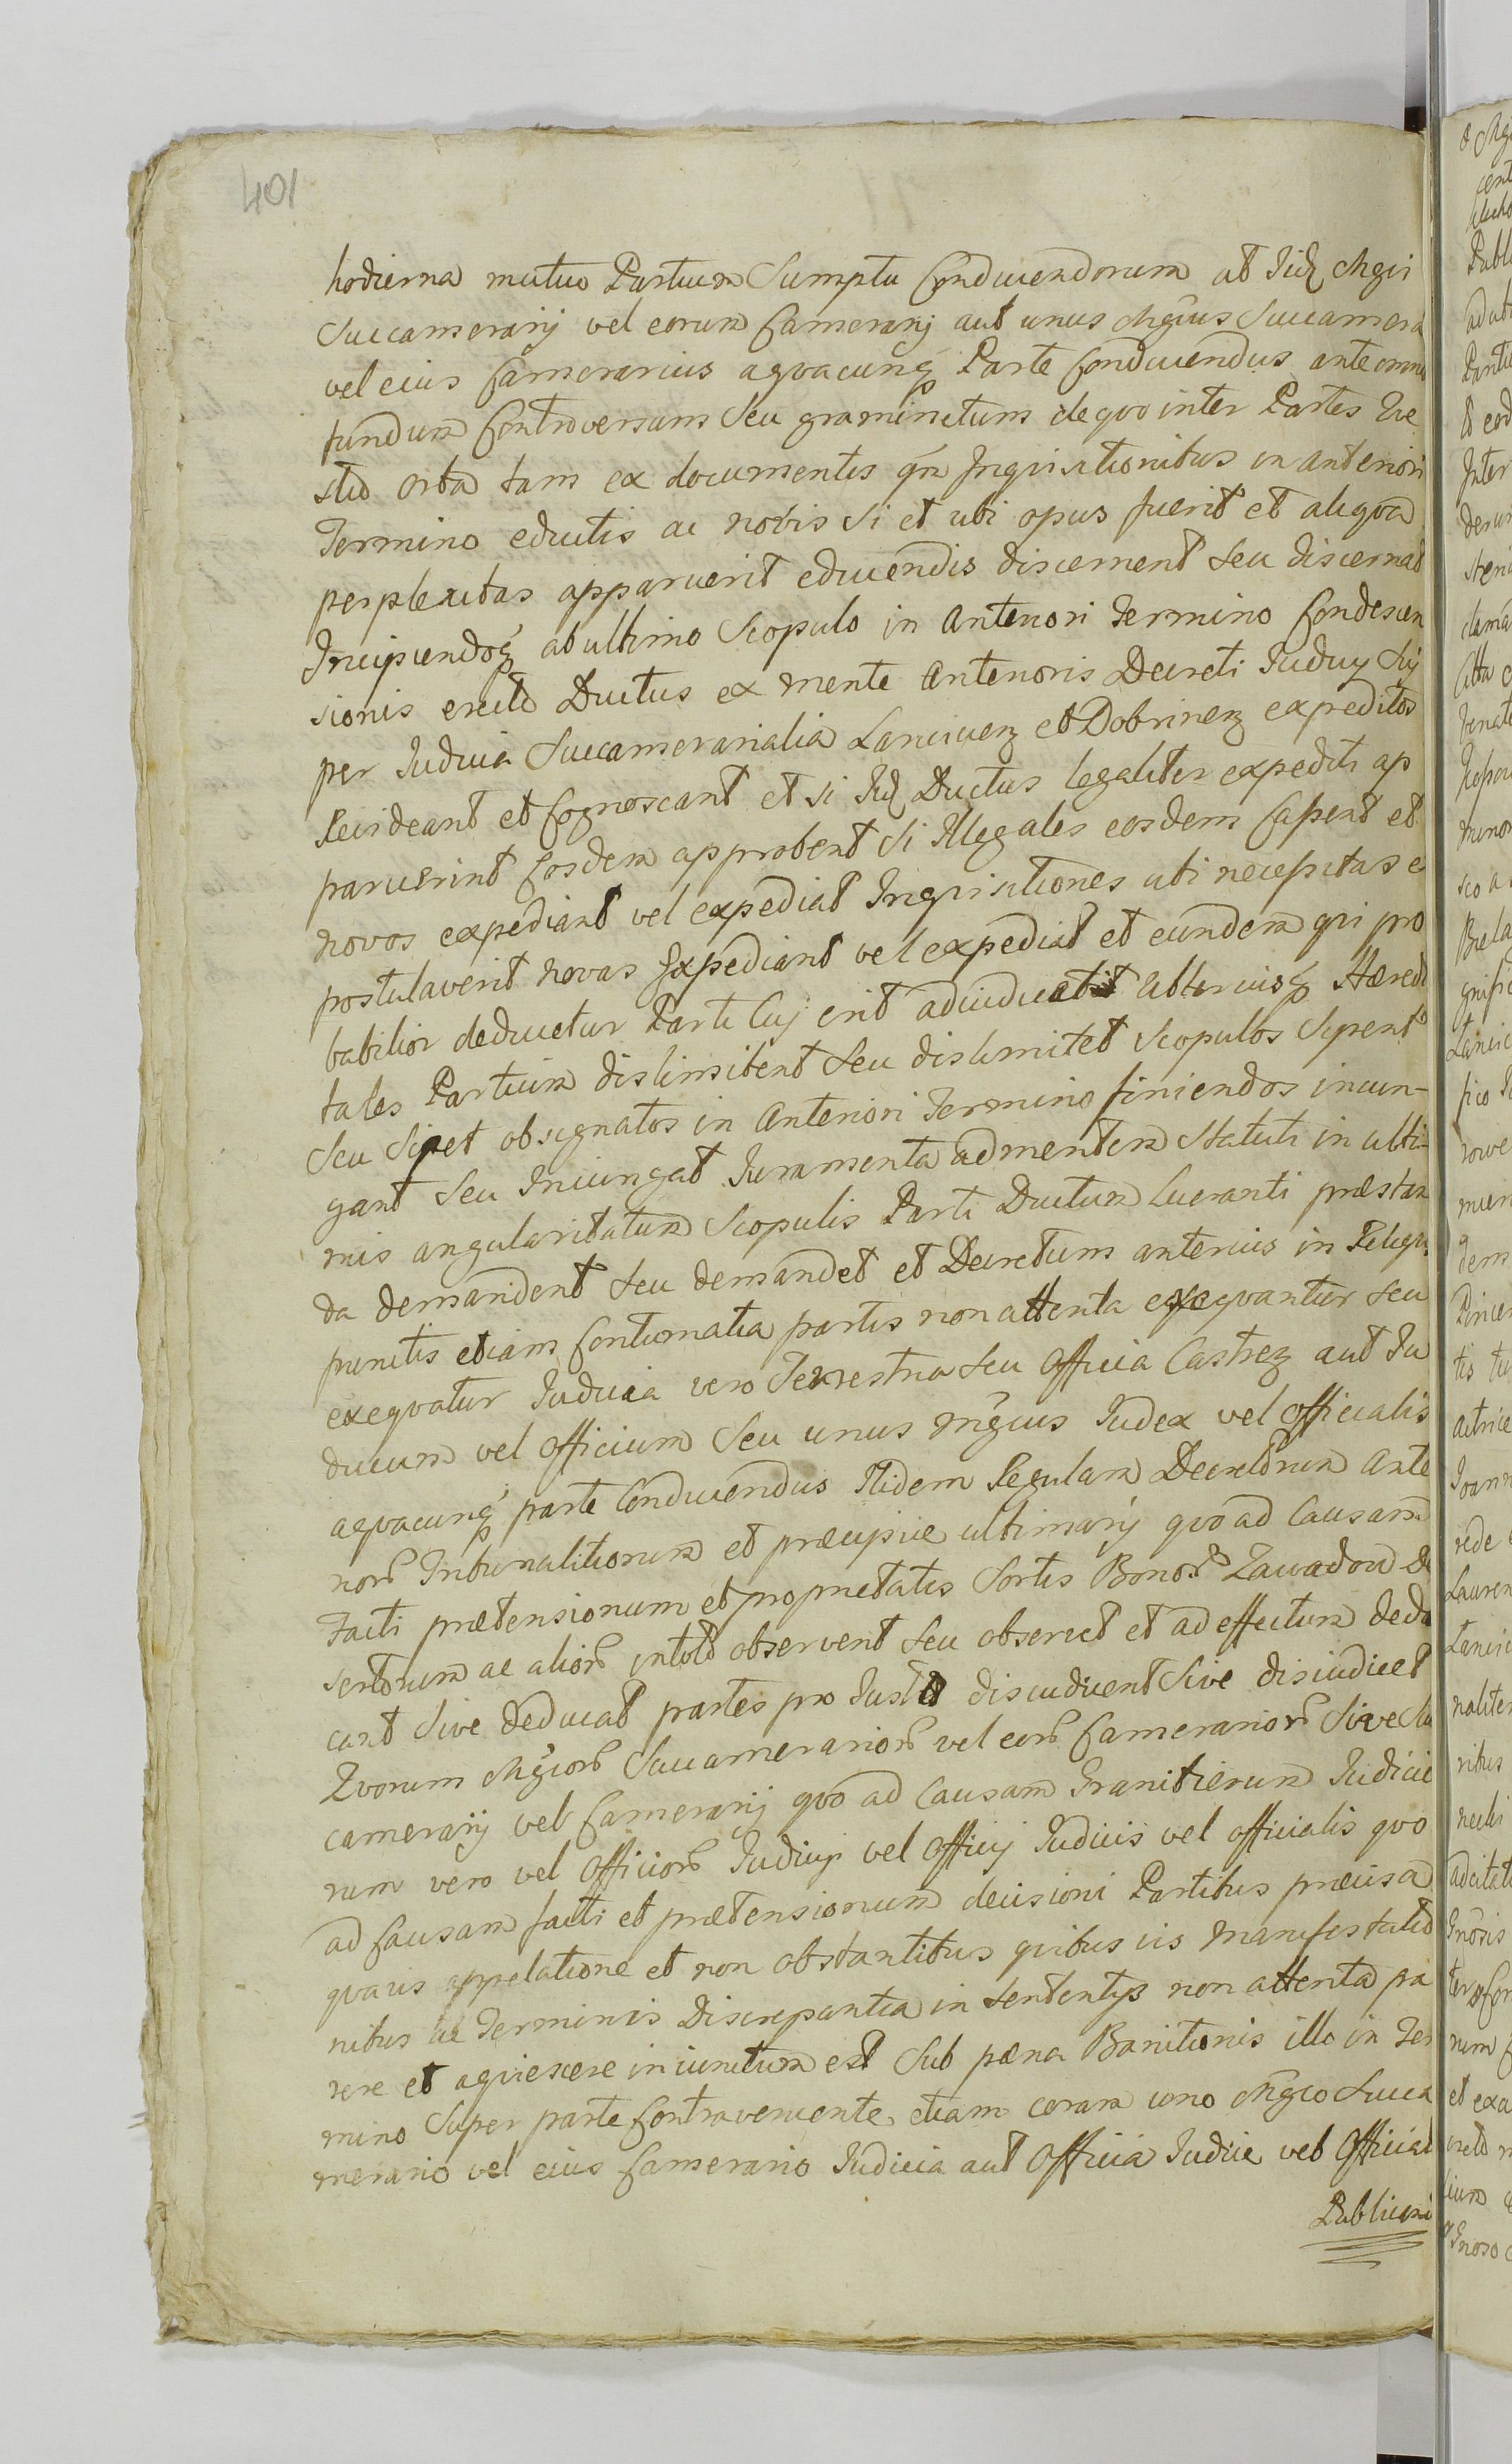 401
hodierna mutuo Partium Sumptu Conducendorum ab Iid Mgci
Succamerarij vel eorum Camerarij aut unus Mgcus Succamera
vel eius Camerarius a qvacunq Parte Conducendus ante omnia
fundum Controversum seu graminetum de qvo inter Partes Qve
stio orta tam ex documentis qm Inqvisitionibus in anteriori
Termino eductis ac nobis si et ubi opus fuerit et aliqva
perplexitas apparuerit educendis discernent seu discernat
Incipiendoq ab ultimo Scopulo in Anteriori Termino Condescen
sionis erecto Ductus ex mente Anterioris Decreti Iudicij Sui
per Iudicia Succamerarialia Lanciciens et Dobrinens expeditos
Revideant et Cognoscant et si Iid Ductus legaliter expediti ap
paruerint Eosdem approbent Si Illegales eosdem Cassent et
novos expediant vel expediat Inqvisitiones ubi necessitas e
postulaverit novas Expediant vel expediat et eundem qvi pro
babilior deducetur Parti Cuj erit adiudicabit utriusq Hæredi
tates Partium dislimitent seu dislimitet Scopulos Sipent
seu Sipet obsignatos in Anteriori Termino finiendos iniun-
gant seu Iniungat Iuramenta ad mentem Statuti in ulti-
mis angularitatum Scopulis Parti Ductum Lucranti præstan
da demandent seu demandet et Decretum anterius in Reliqvis
punctis etiam Contumatia partis non attenta exeqvantur seu
exeqvatur Iudicia vero Terrestria seu Officia Castrens aut Iu
dicium vel Officium seu unus Mgcus Iudex vel Officialis
a qvacunq parte Conducendus Itidem Regulam Decretorum Ante
rior Tribunalitiorum et præcipue ultimarij qvo ad Causam
Facti prætensionum et proprietatis Sortis Bonor Zawadow De
sertorum ac alior in toto observent seu observet et ad effectum dedu
cant Sive deducat partes pro Iusto disiudicent Sive disiudicet
Qvorum Mgcor Succamerarior vel eor Camerarior Sive Suc
camerarij vel Camerarij qvo ad Causam Granitierum Iudicio
rum vero vel Officior Iudicij vel Officij Iudicis vel officialis qvo
ad Causam facti et prætensionum decisioni Partibus præcisa
qvavis appelatione et non obstantibus qvibus vis Manifestatio
nibus ac Terminis Discrepantia in sententijs non attenta pa
rere et aqviescere iniunctum est Sub pæna Banitionis illo in Ter
mino Super parte Contraveniente etiam coram uno Mgco Succa
merario vel eius Camerario Iudicia aut Officia Iudice vel Official
Publicari